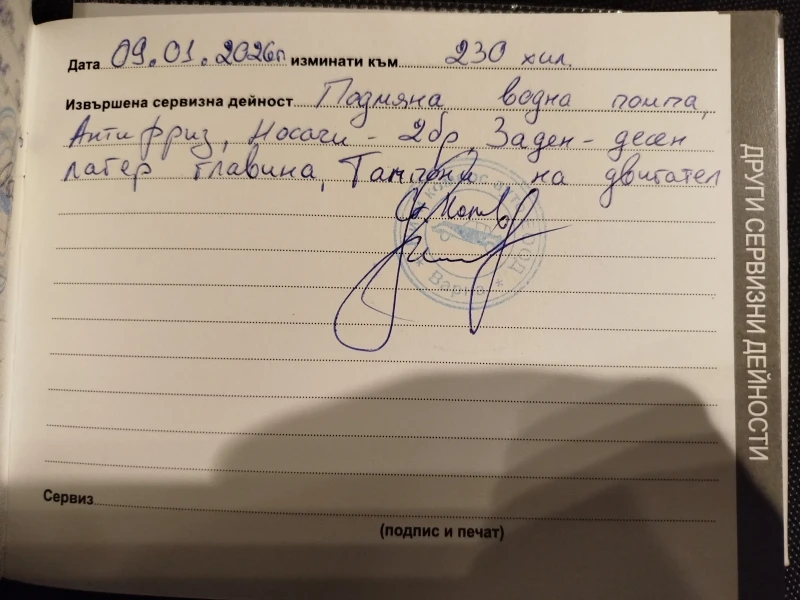 Дата 09.01.2026г изминати км 230 хил.
Извършена сервизна дейност Подмяна водна помпа,
Антифриз, Носачи - 2бр, Заден - десен
лагер главина, Тампони на двигател
Варна
Сервиз
(подпис и печат)
ДРУГИ СЕРВИЗНИ ДЕЙНОСТИ